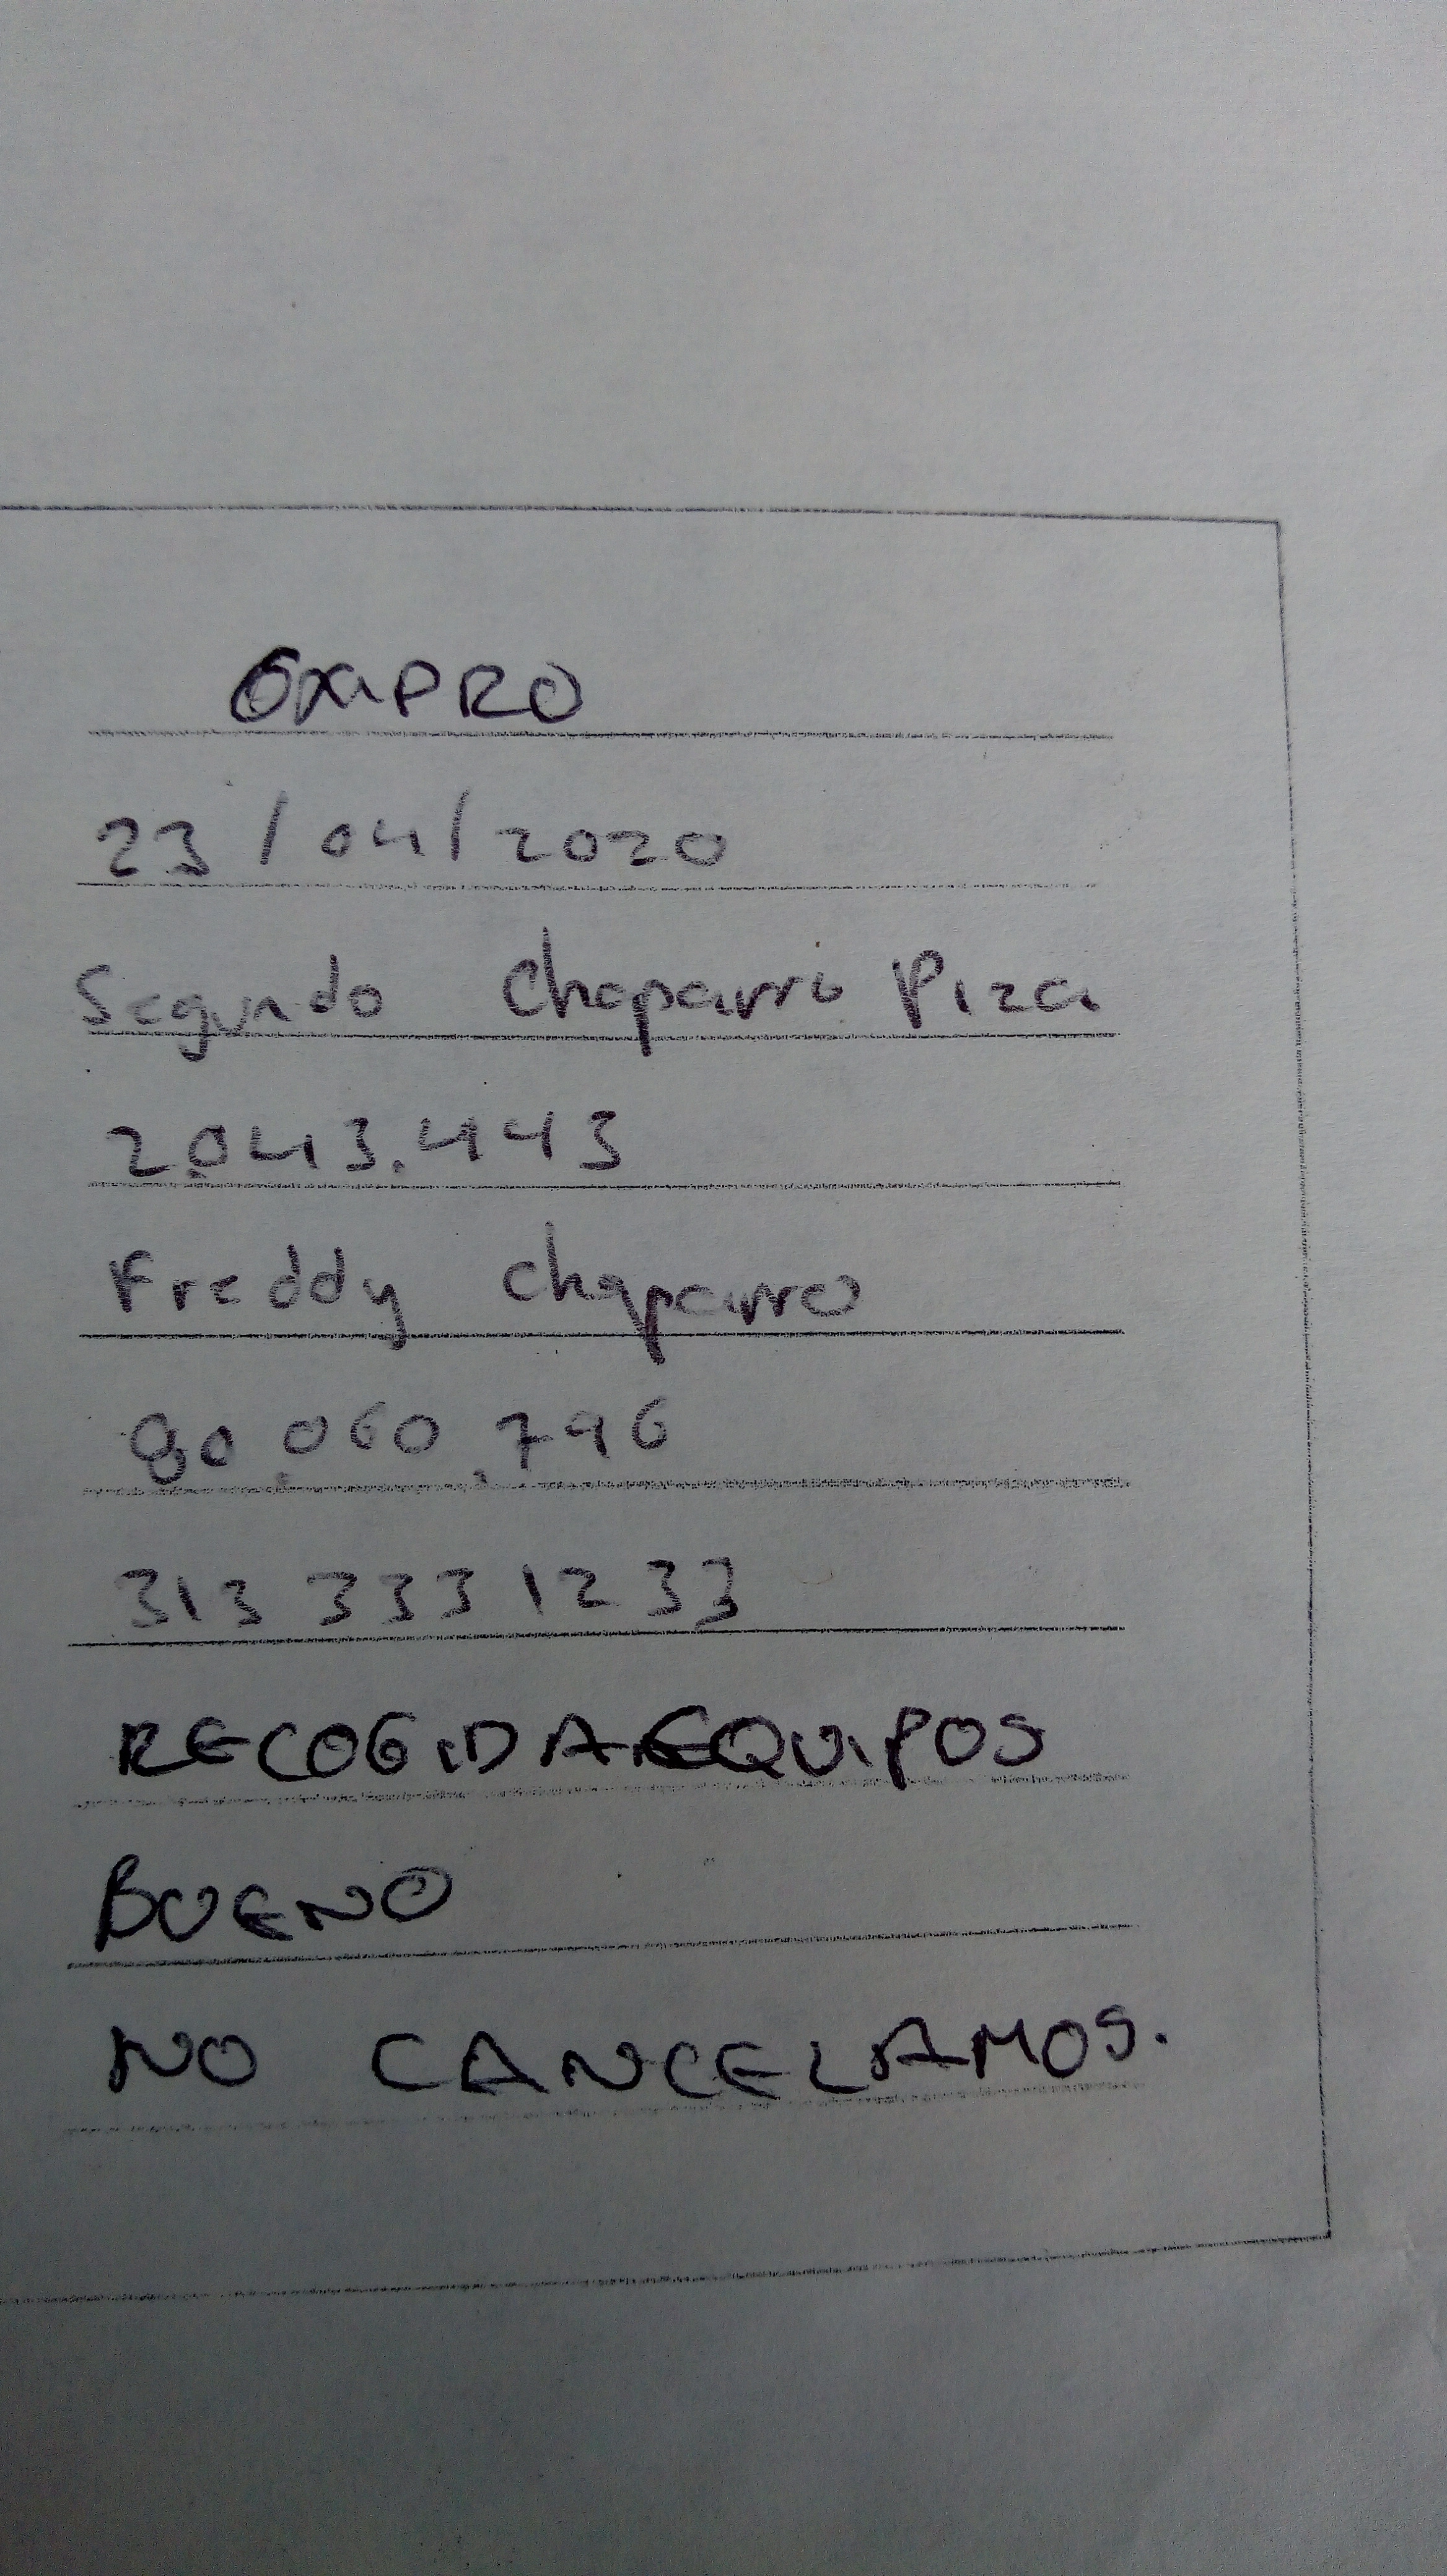 OXIPRO
23/04/2020
Segundo Chaparro Piza
2.043.443
Freddy Chaparro
80.060.796
313 333 1233
RECOGIDA EQUIPOS
BUENO
NO CANCELAMOS.